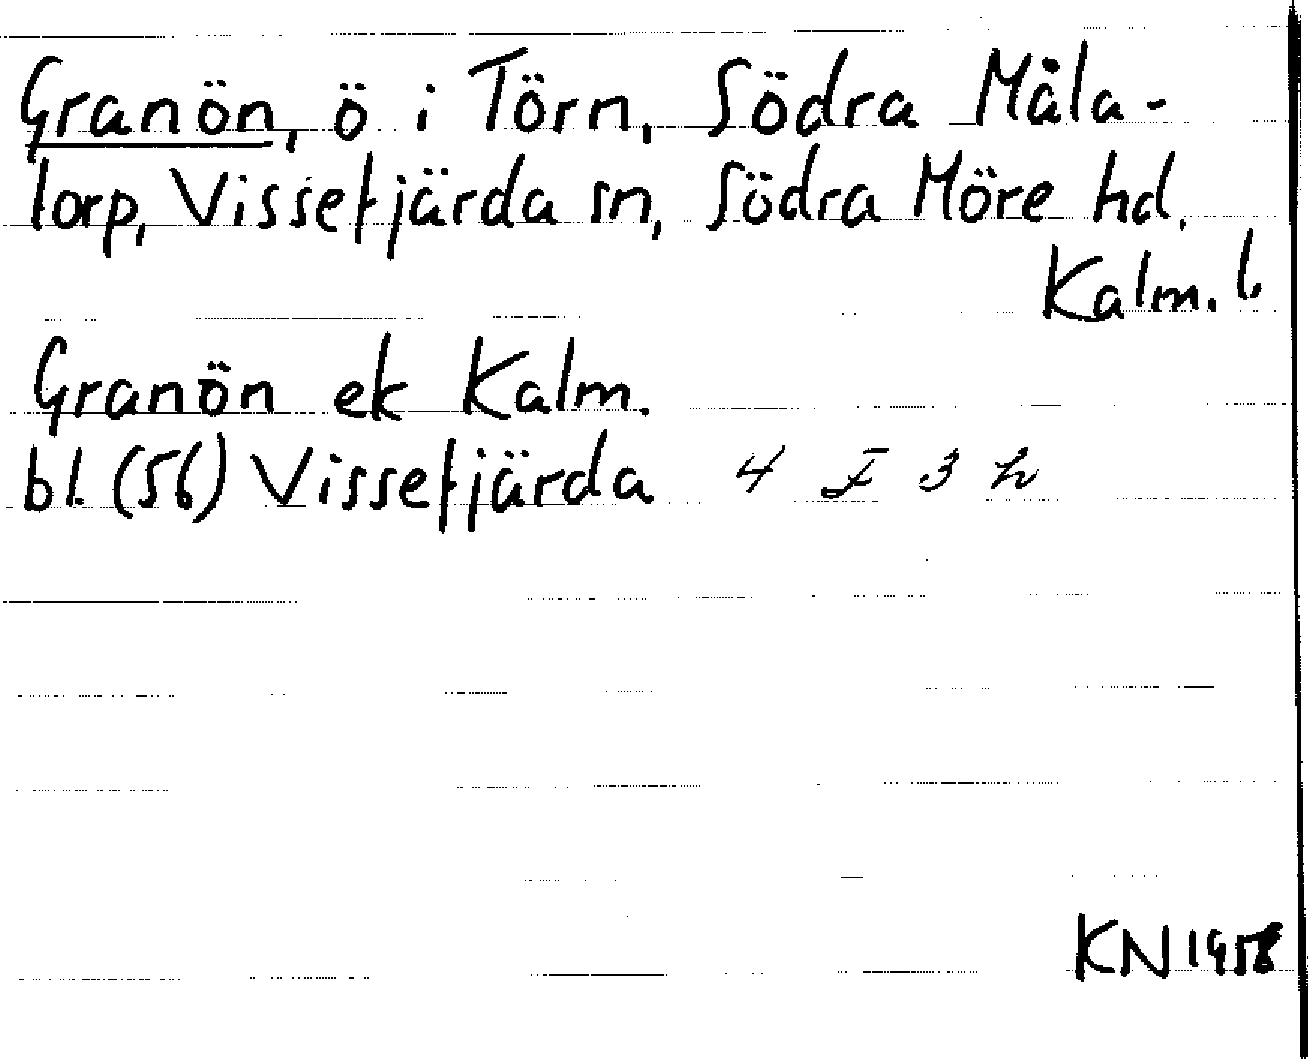 Granön, ö i Törn, Södra Måla-
torp, Vissefjärda sn, Södra Möre hd.
Kalm. l.
Granön ek Kalm.
bl. (56) Vissefjärda 4 F 3 h
KN 1958